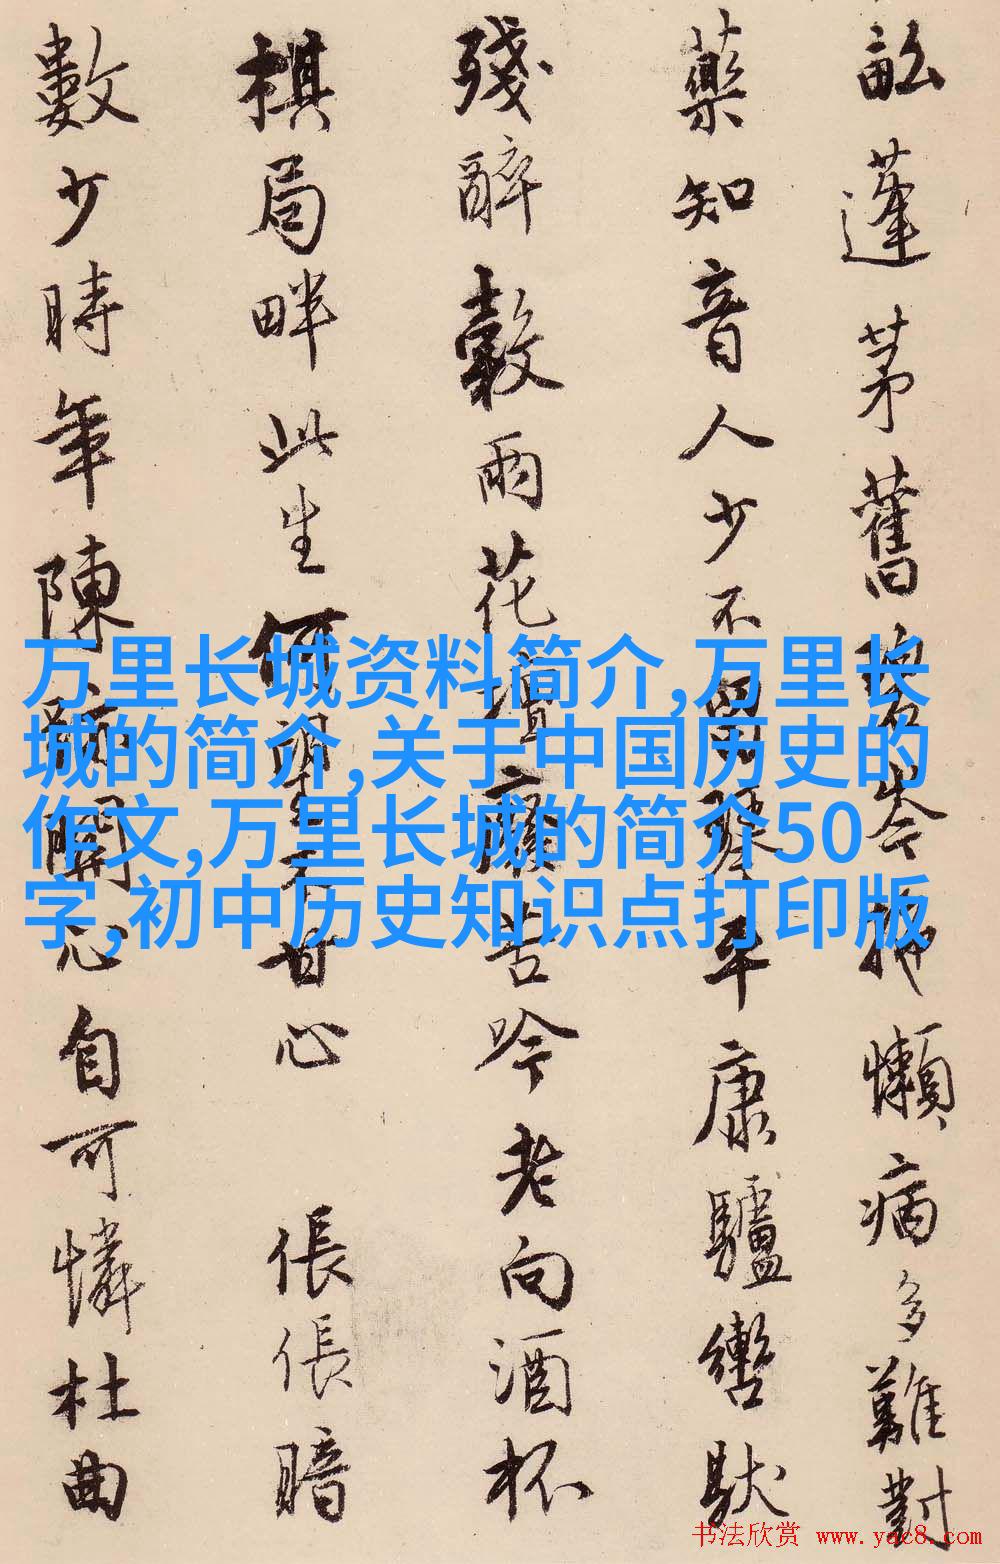 畝蓬茅舊碧岑抛懶病多難對
藥知音人少不留琴平康驢轡馱
殘醉穀雨花壇苦吟老向酒杯
棋局畔此生何望不甘心 倀倀暗
數少時年陳跡關心自可憐杜曲
万里长城资料简介,万里长
城的简介,关于中国历史的
作文,万里长城的简介50
字,初中历史知识点打印版
书法欣赏 www.yac8.com